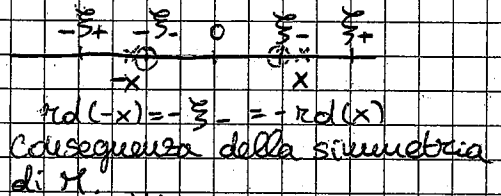 -ξ+ -ξ- 0 ξ- ξ+
-x x
rd(-x)=-ξ- =-rd(x)
conseguenza della simmetria
di M.